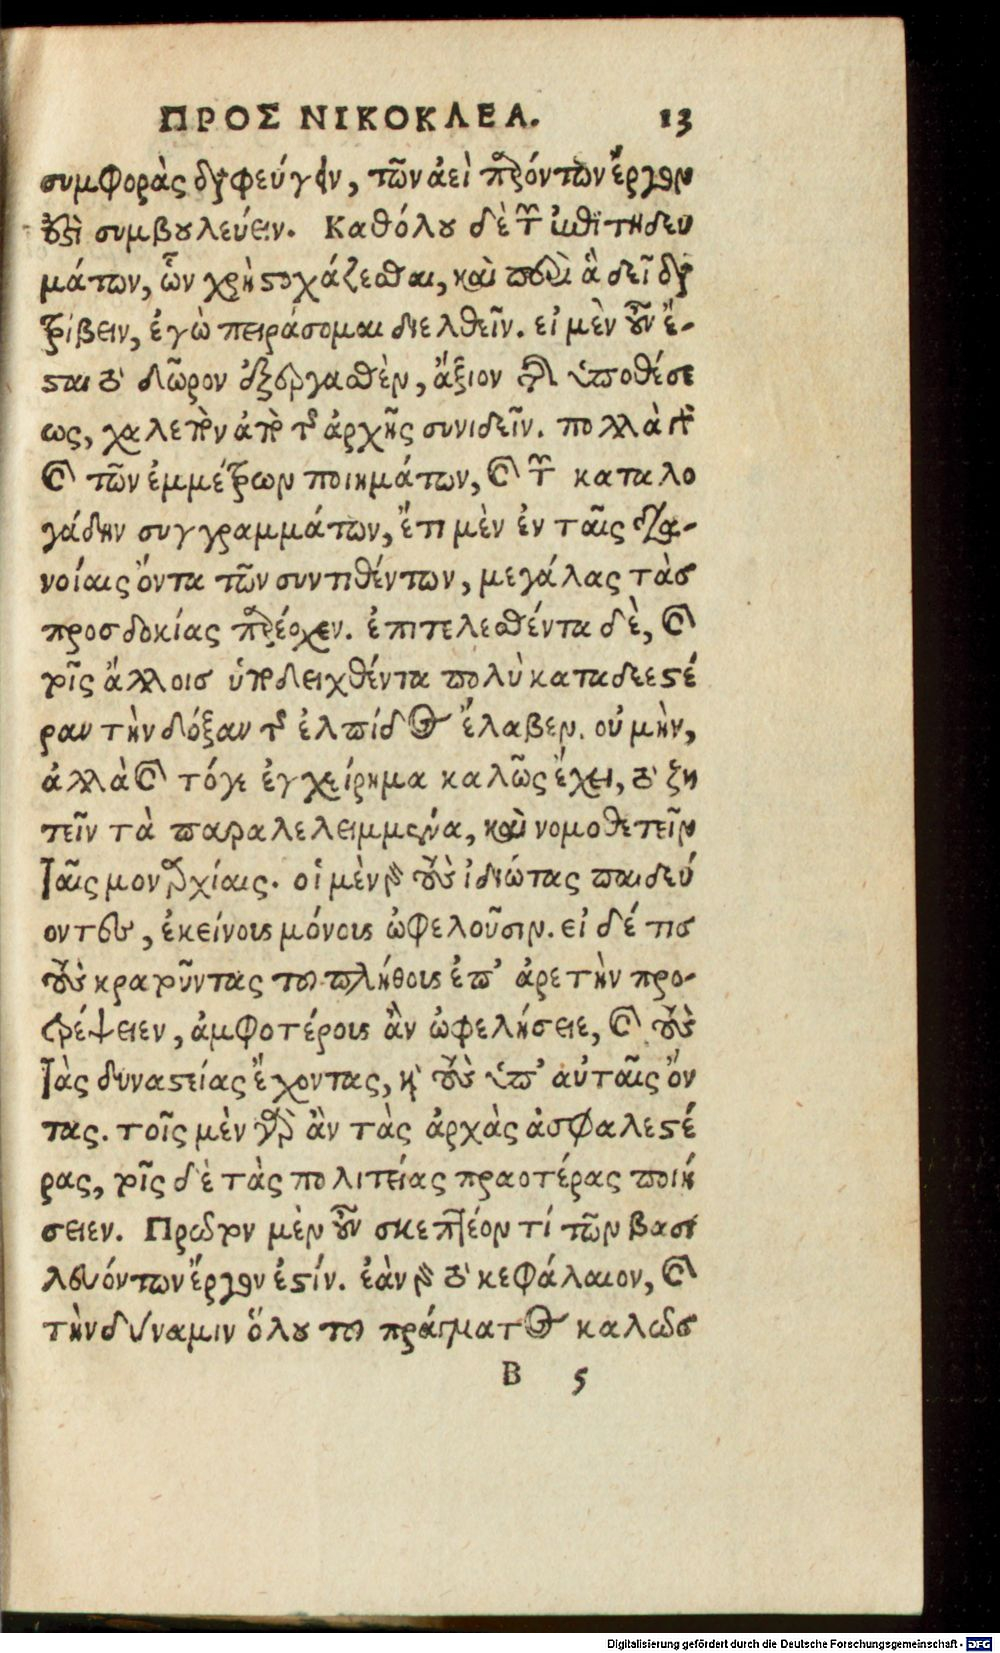 ΠΡΟΣ ΝΙΚΟΚΛΕΑ. 13
συμφορὰς διαφεύγειν, τῶν ἀεὶ παρόντων ἔργων
ἐστὶ συμβουλεύειν. Καθόλου δὲ τῶν ἐπιτηδευ
μάτων, ὧν χρὴ στοχάζεσθαι, καὶ περὶ ἃ δεῖ δια
τρίβειν, ἐγὼ πειράσομαι διελθεῖν. εἰ μὲν οὖν ἔ-
σται τὸ δῶρον ἐξεργασθὲν, ἄξιον τῆς ὑποθέσε
ως, χαλεπὸν ἀπὸ τῆς ἀρχῆς συνιδεῖν. πολλὰ γὰρ
καὶ τῶν ἐμμέτρων ποιημάτων, καὶ τῶν καταλο
γάδην συγγραμμάτων, ἔτι μὲν ἐν ταῖς δια-
νοίαις ὄντα τῶν συντιθέντων, μεγάλας τὰς
προσδοκίας παρέσχεν. ἐπιτελεσθέντα δὲ, καὶ
τοῖς ἄλλοις ὑποδειχθέντα πολὺ καταδεεστέ
ραν τὴν δόξαν τῆς ἐλπίδος ἔλαβεν. οὐ μὴν,
ἀλλὰ καὶ τόγε ἐγχείρημα καλῶς ἔχει, τὸ ζη
τεῖν τὰ παραλελειμμένα, καὶ νομοθετεῖν
ταῖς μοναρχίαις. οἱ μὲν γὰρ τοὺς ἰδιώτας παιδεύ
οντες, ἐκείνους μόνους ὠφελοῦσιν. εἰ δέ τις
τοὺς κρατοῦντας τοῦ πλήθους ἐπ’ ἀρετὴν προ-
τρέψειεν, ἀμφοτέρους ἂν ὠφελήσειε, καὶ τοὺς
τὰς δυναστείας ἔχοντας, καὶ τοὺς ὑπ’ αὐταῖς ὄν
τας. τοῖς μὲν γὰρ ἂν τὰς ἀρχὰς ἀσφαλεστέ
ρας, τοῖς δὲ τὰς πολιτείας πραοτέρας ποιή
σειεν. Πρῶτον μὲν οὖν σκεπτέον τί τῶν βασι
λευόντων ἔργον ἐστίν. ἐὰν γὰρ τὸ κεφάλαιον, καὶ
τὴν δύναμιν ὅλου τοῦ πράγματος καλῶς
B 5
Digitalisierung gefördert durch die Deutsche Forschungsgemeinschaft - DFG